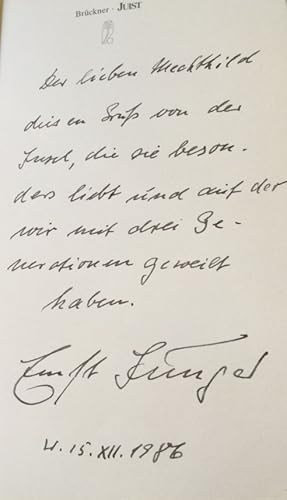 Brückner · JUIST
Der lieben Mechthild
diesen Gruß von der
Insel, die sie beson-
ders liebt und auf der
wir mit drei Ge-
nerationen geweilt
haben.
Ernst Jünger
W. 15. XII. 1986